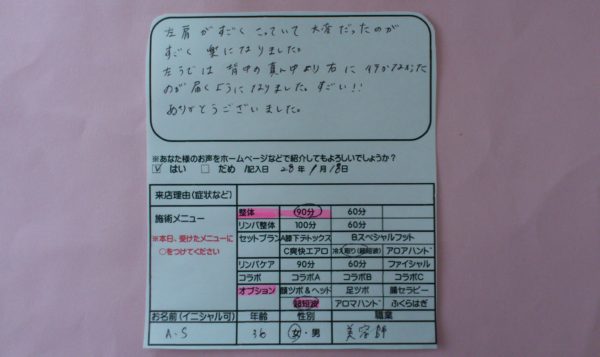 左肩がすごくこっていて大変だったのが
すごく楽になりました。
左うでは背中の真ん中より右に行かなかった
のが届くようになりました。すごい!!
ありがとうございました。
※あなた様のお声をホームページなどで紹介してもよろしいでしょうか?
はい だめ /記入日 28年 9月 18日
来店理由(症状など)
施術メニュー
※本日、受けたメニューに
○をつけてください
整体 90分 60分
リンパ整体 100分 60分
セットプラン A膝下デトックス Bスペシャルフット
C爽快エアロ 冷え取り(超短波) アロアハンド
リンパケア 90分 60分 ファイシャル
コラボ コラボA コラボB コラボC
オプション 顔ツボ&ヘッド 足ツボ 腸セラピー
超短波 アロマハンド ふくらはぎ
お名前(イニシャル可) 年齢 性別 職業
A.S 36 女・男 美容師